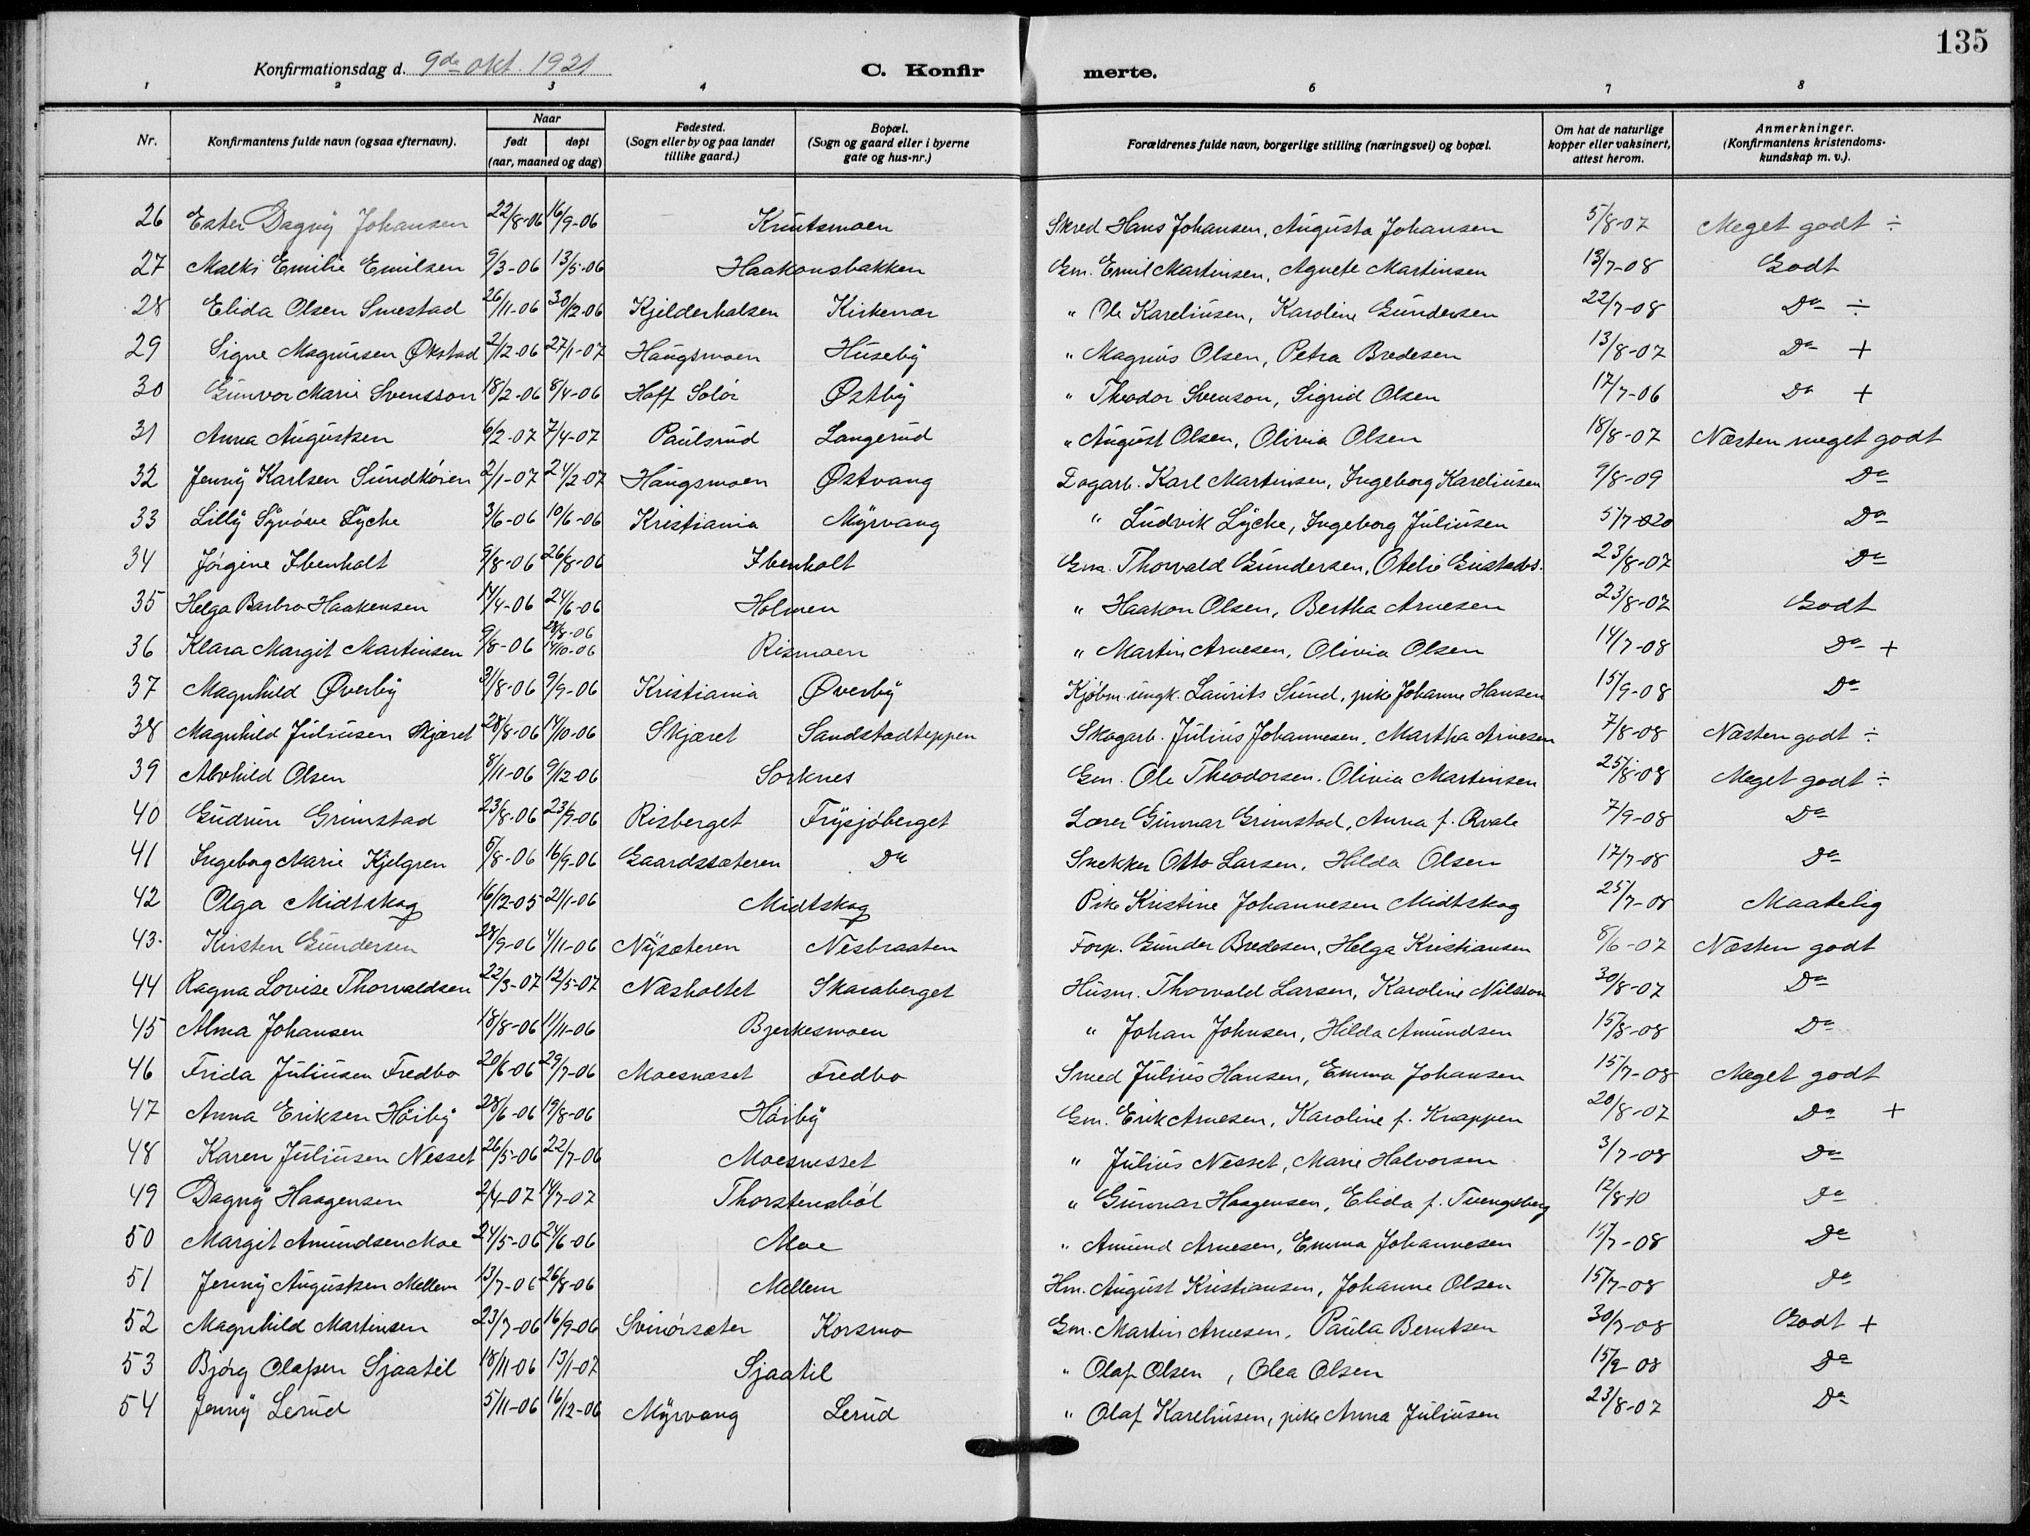 135
Konfirmationsdag d. 9de okt. 1921 C. Konfir merte.
1 2 3 4 6 7 8
Nr. Konfirmantens fulde navn (ogsaa efternavn). Naar født døpt (aar, maaned og dag) Fødested. (Sogn eller by og paa landet tillike gaard.) Bopæl. (Sogn og gaard eller i byerne gate og hus-nr.) Forældrenes fulde navn, borgerlige stilling (næringsvei) og bopæl. Om hat de naturlige kopper eller vaksinert, attest herom. Anmerkninger. (Konfirmantens kristendoms-kundskap m. v.).
26 Ester Dagny Johansen 22/8-06 16/9-06 Knutsmoen Skred Hans Johansen, Augusta Johansen 5/8-07 Meget godt ÷
27 Malki Emilie Emilsen 9/3-06 13/5-06 Haakonsbakken Gm. Emil Martinsen, Agnete Martinsen 13/7-08 Godt
28 Elida Olsen Smestad 26/11-06 30/12-06 Kjelderhalsen Kirkenær " Ole Kareliusen, Karoline Gundersen 22/7-08 Do ÷
29 Signe Magnusen Økstad 2/12-06 27/1-07 Haugsmoen Huseby " Magnus Olsen, Petra Bredesen 13/8-07 Do +
30 Gunvor Marie Svensson 18/2-06 8/4-06 Hoff Solør Østby " Theodor Svenson, Sigrid Olsen 17/7-06 Do +
31 Anna Augustsen 6/2-07 7/4-07 Paulsrud Langerud " August Olsen, Olivia Olsen 18/8-07 Næsten meget godt
32 Jenny Karlsen Sundkøien 2/1-07 24/2-07 Haugsmoen Østvang Dagarb. Karl Martinsen, Ingeborg Kareliusen 9/8-09 Do
33 Lilly Synøve Lycke 3/6-06 10/6-06 Kristiania Myrvang " Ludvik Lycke, Ingeborg Juliusen 5/7-020 Do
34 Jørgine Ibenholt 9/8-06 26/8-06 Ibenholt Gm. Thorvald Gundersen, Otelie Gustads. 23/8-07 Do
35 Helga Barbro Haakensen 14/4-06 24/6-06 Holmen " Haakon Olsen, Bertha Arnesen 23/8-07 Godt
36 Klara Margit Martinsen 9/8-06 28/8-06 14/10-06 Rismoen " Martin Arnesen, Olivia Olsen 14/7-08 Do +
37 Magnhild Øverby 31/8-06 9/9-06 Kristiania Øverby Kjøbm. ungk. Laurits Sund, pike Johanne Hansen 15/9-08 Do
38 Magnhild Juliusen Skjæret 28/8-06 14/10-06 Skjæret Sandstadteppen Skogarb. Julius Johannesen, Martha Arnesen 7/8-08 Næsten godt ÷
39 Alvhild Olsen 8/11-06 9/12-06 Sorknes Gm. Ole Theodorsen, Olivia Martinsen 25/8-08 Meget godt ÷
40 Gudrun Grimstad 23/8-06 23/9-06 Risberget Frysjøberget Lærer Gunnar Grimstad, Anna f. Qvale 7/9-08 Do
41 Ingeborg Marie Kjelgren 5/8-06 16/9-06 Gaardssæteren Do Snekker Otto Larsen, Hilda Olsen 17/7-08 Do
42 Olga Midtskog 16/12-05 21/1-06 Midtskog Pike Kristine Johannesen Midtskog 25/7-08 Maatelig
43. Kirsten Gundersen 28/9-06 4/11-06 Nysæteren Nesbraaten Forp. Gunder Bredesen, Helga Kristiansen 8/6-07 Næsten godt
44 Ragna Lovise Thorvaldsen 22/3-07 12/5-07 Næsholtet Skaraberget Husm. Thorvald Larsen, Karoline Nilsson 30/8-07 Do
45 Alma Johansen 18/8-06 11/11-06 Bjerkesmoen " Johan Johnsen, Hilda Amundsen 15/8-08 Do
46 Frida Juliusen Fredbo 20/6-06 29/7-06 Moesnæset Fredbo Smed Julius Hansen, Emma Johansen 15/7-08 Meget godt
47 Anna Eriksen Høiby 28/6-06 19/8-06 Høiby Gm. Erik Arnesen, Karoline f. Knappen 20/8-07 Do +
48 Karen Juliusen Nesset 26/5-06 22/7-06 Moesnesset " Julius Nesset, Marie Halvorsen 3/7-08 Do
49 Dagny Haagensen 2/4-07 14/7-07 Thorstensbøl " Gunnar Haagensen, Elida f. Tvengsberg 12/8-10 Do
50 Margit Amundsen Moe 24/5-06 24/6-06 Moe " Amund Arnesen, Emma Johannesen 15/7-08 Do
51 Jenny Augustsen Mellem 13/7-06 26/8-06 Mellem Hm. August Kristiansen, Johanne Olsen 15/7-08 Do
52 Magnhild Martinsen 23/7-06 16/9-06 Svinørsæter Korsmo Gm. Martin Arnesen, Paula Berntsen 30/7-08 Godt +
53 Bjørg Olafsen Sjaatil 18/11-06 13/1-07 Sjaatil " Olaf Olsen, Olea Olsen 15/9 08 Do
54 Jenny Lerud 5/11-06 16/12-06 Myrvang Lerud " Olaf Kareliusen, pike Anna Juliusen 23/8-07 Do